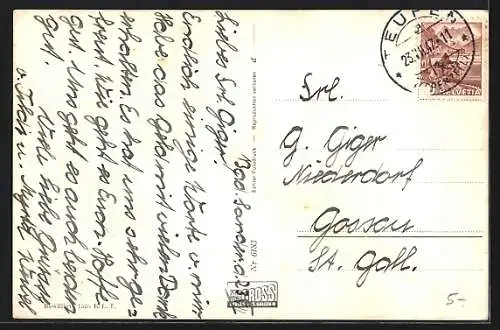 Bad Sonder d. 23.
Liebes Frl. Giger
Endlich einige Worte v. mir
Habe das Geld mit vielem Dank
erhalten. Es hat uns sehr ge-
freut. Wie geht es Euch. Hoffe
gut. Uns geht es auch recht
gut.
Viele liebe Grüsse
v.
Frl.
G. Giger
Niederdorf
Gossau
St. Gall.
TEUFEN
HELVETIA
GROSS
Nr 6183
Echter Fotodruck — Reproduktion verboten
5-